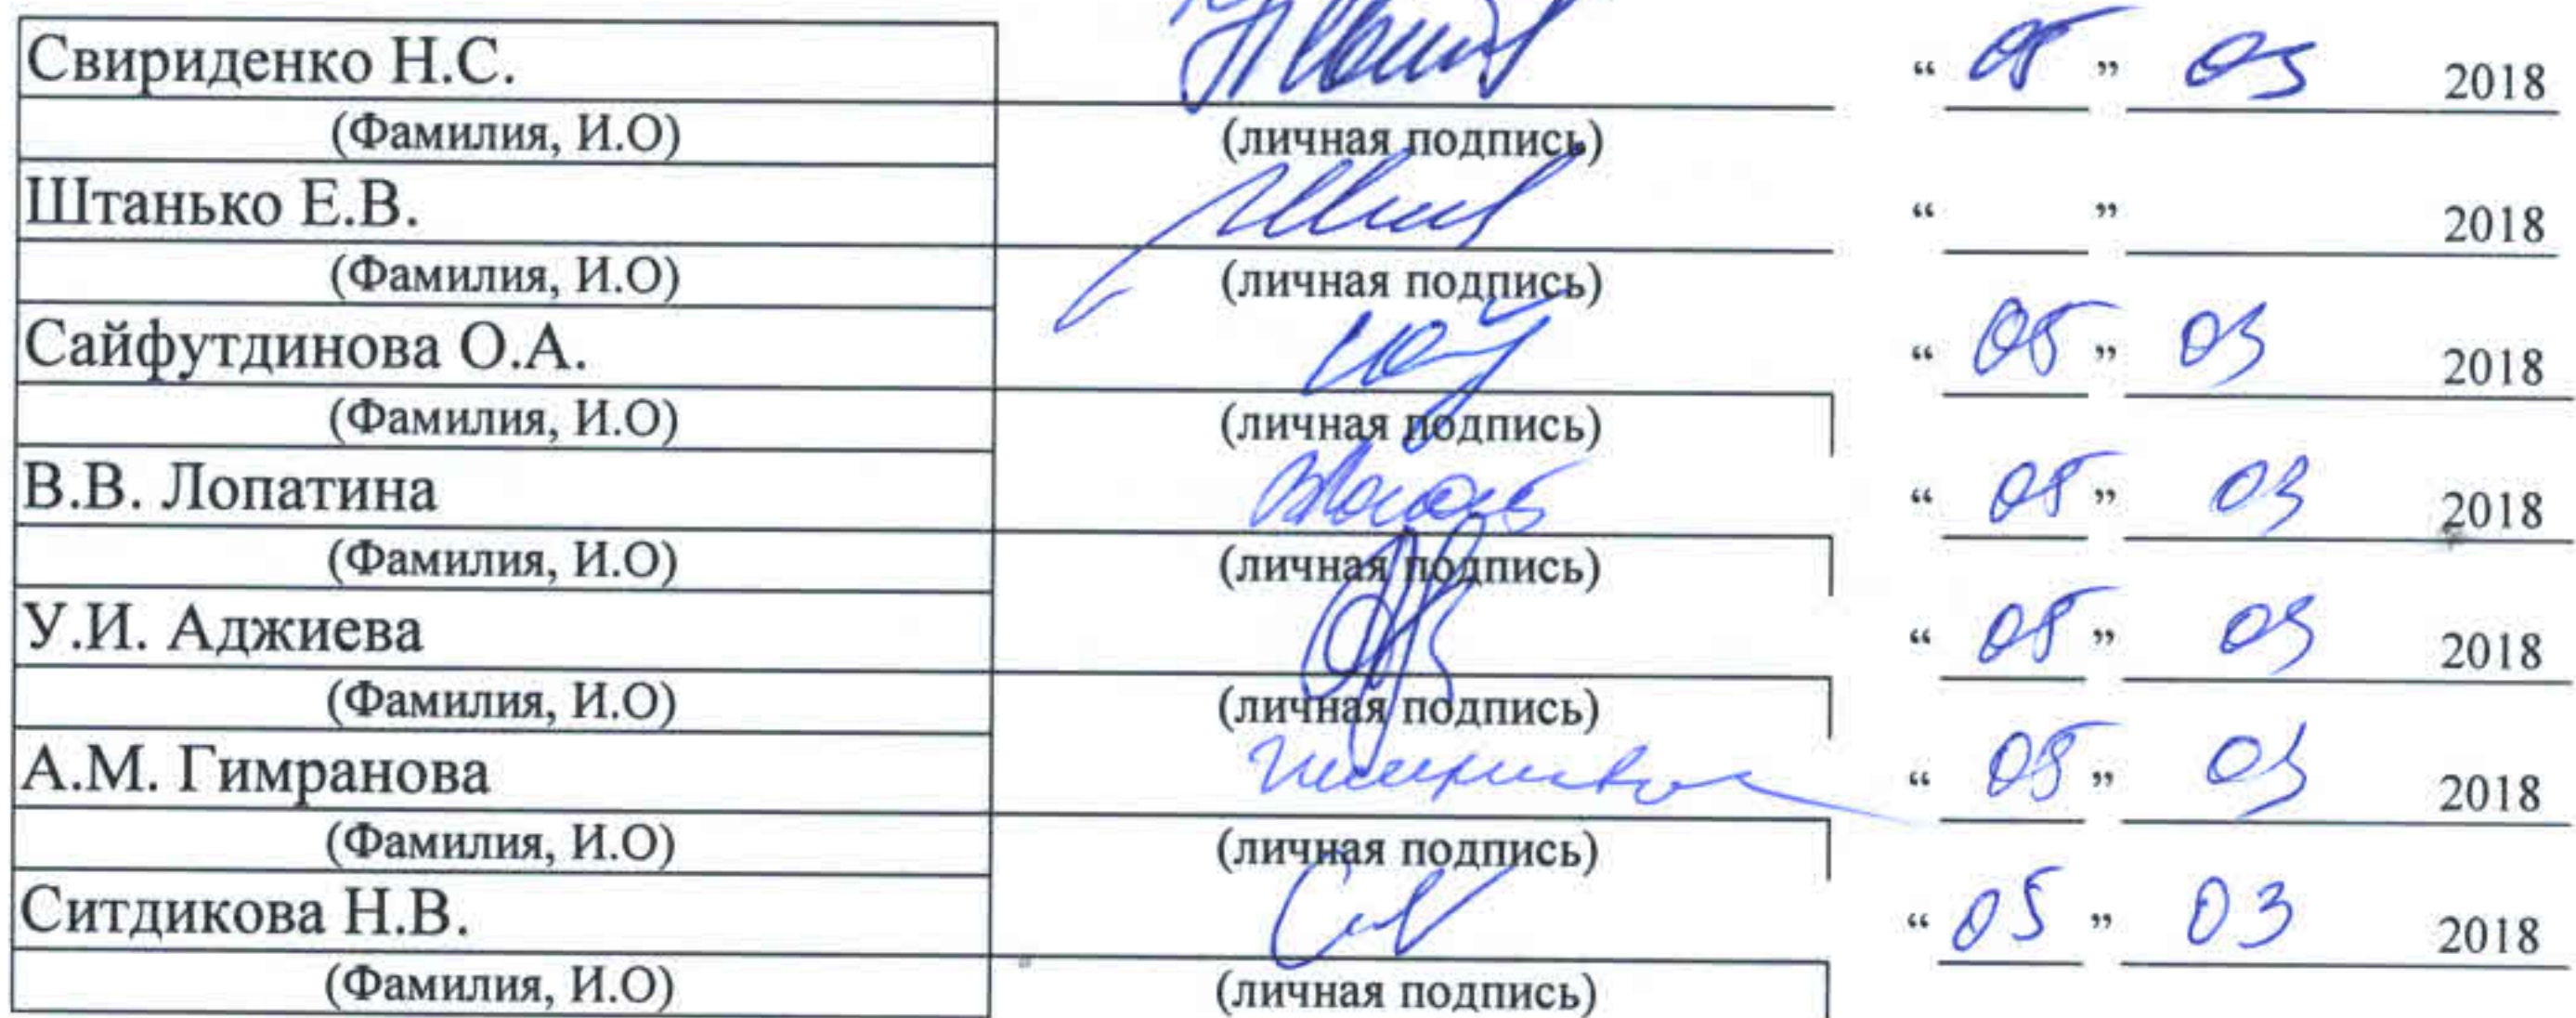 Свириденко Н.С. “ 05 ” 03 2018
(Фамилия, И.О) (личная подпись)
Штанько Е.В. “ ” 2018
(Фамилия, И.О) (личная подпись)
Сайфутдинова О.А. “ 05 ” 03 2018
(Фамилия, И.О) (личная подпись)
В.В. Лопатина “ 05 ” 03 2018
(Фамилия, И.О) (личная подпись)
У.И. Аджиева “ 05 ” 03 2018
(Фамилия, И.О) (личная подпись)
А.М. Гимранова “ 05 ” 03 2018
(Фамилия, И.О) (личная подпись)
Ситдикова Н.В. “ 05 ” 03 2018
(Фамилия, И.О) (личная подпись)